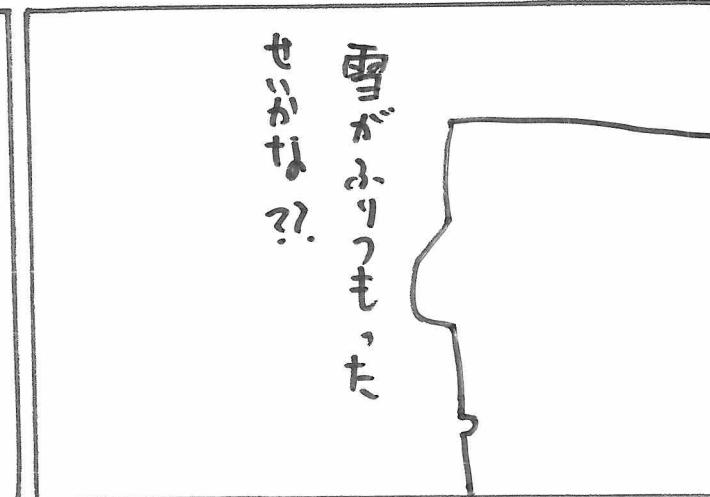 雪がふりつもった
せいかな??